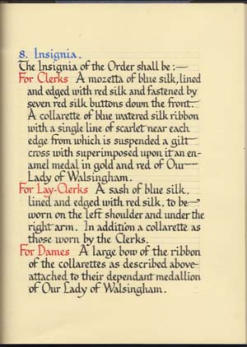 8. Insignia.
The Insignia of the Order shall be :—
For Clerks A mozetta of blue silk, lined
and edged with red silk and fastened by
seven red silk buttons down the front.
A collarette of blue watered silk ribbon
with a single line of scarlet near each
edge from which is suspended a gilt
cross with superimposed upon it an en-
amel medal in gold and red of Our
Lady of Walsingham.
For Lay-Clerks A sash of blue silk,
lined and edged with red silk, to be
worn on the left shoulder and under the
right arm. In addition a collarette as
those worn by the Clerks.
For Dames A large bow of the ribbon
of the collarettes as described above
attached to their dependant medallion
of Our Lady of Walsingham.